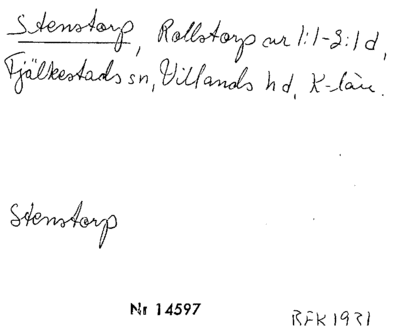 Stenstorp, Rollstorp nr 1:1-2:1 d,
Fjälkestads sn, Villands hd, K-län.
Stenstorp
Nr 14597
REK 1931